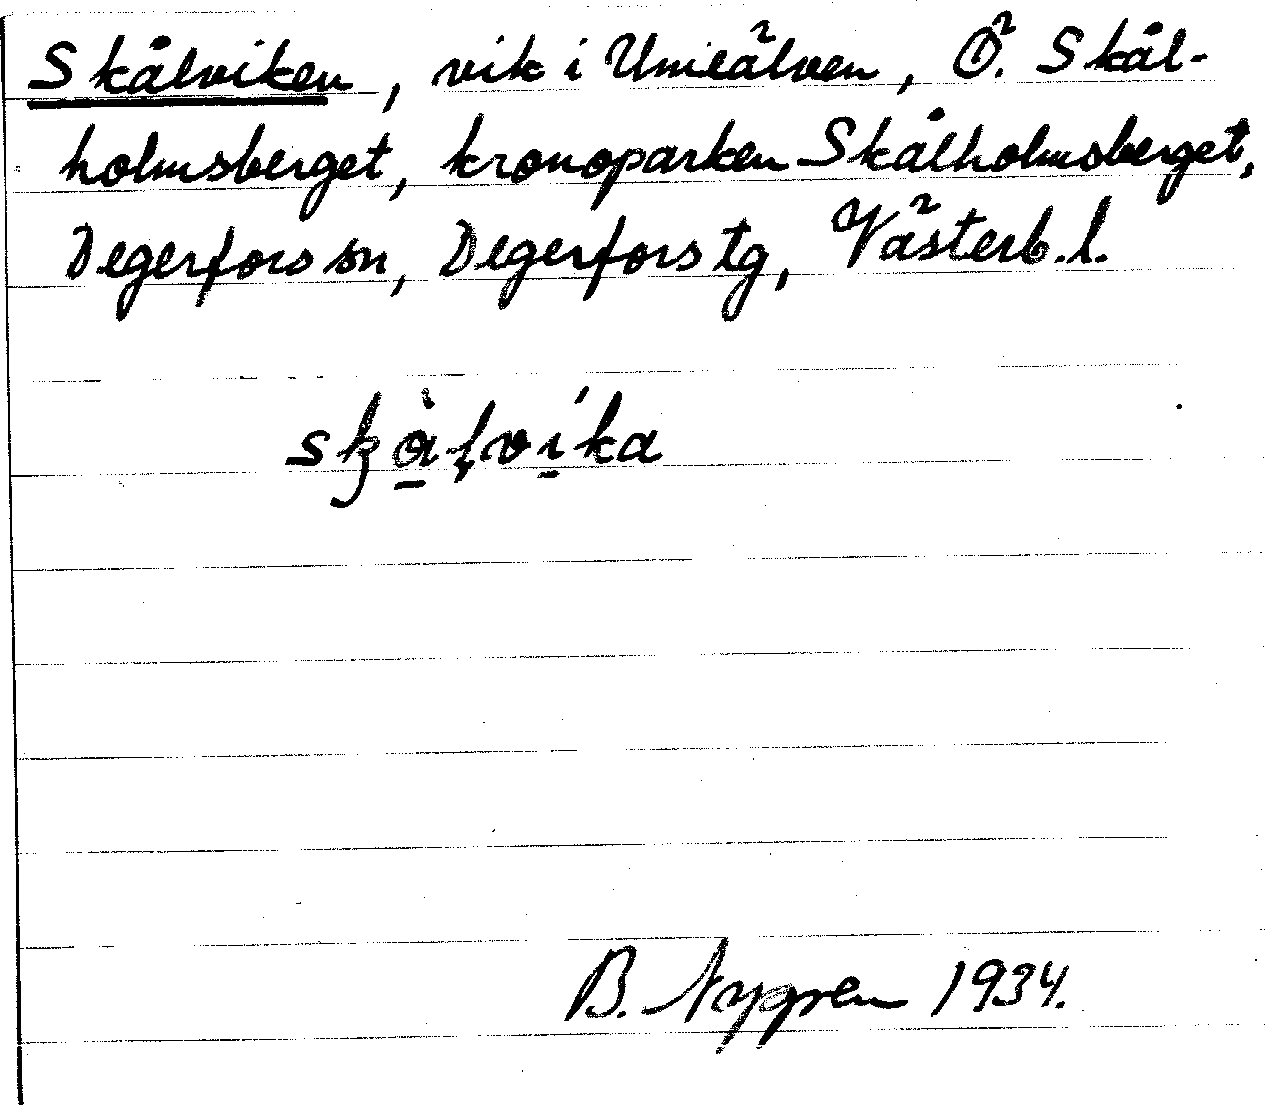 Skålviken, vik i Umeälven, Ö. Skål-
holmsberget, kronoparken Skålholmsberget,
Degerfors sn, Degerfors tg, Västerb. l.
skålvika
B. Nygren 1934.